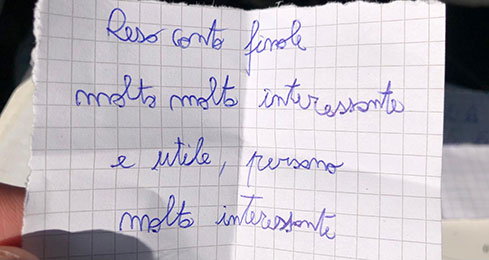 Reso conto finale
molto molto interessante
e utile, persono
molto interessante